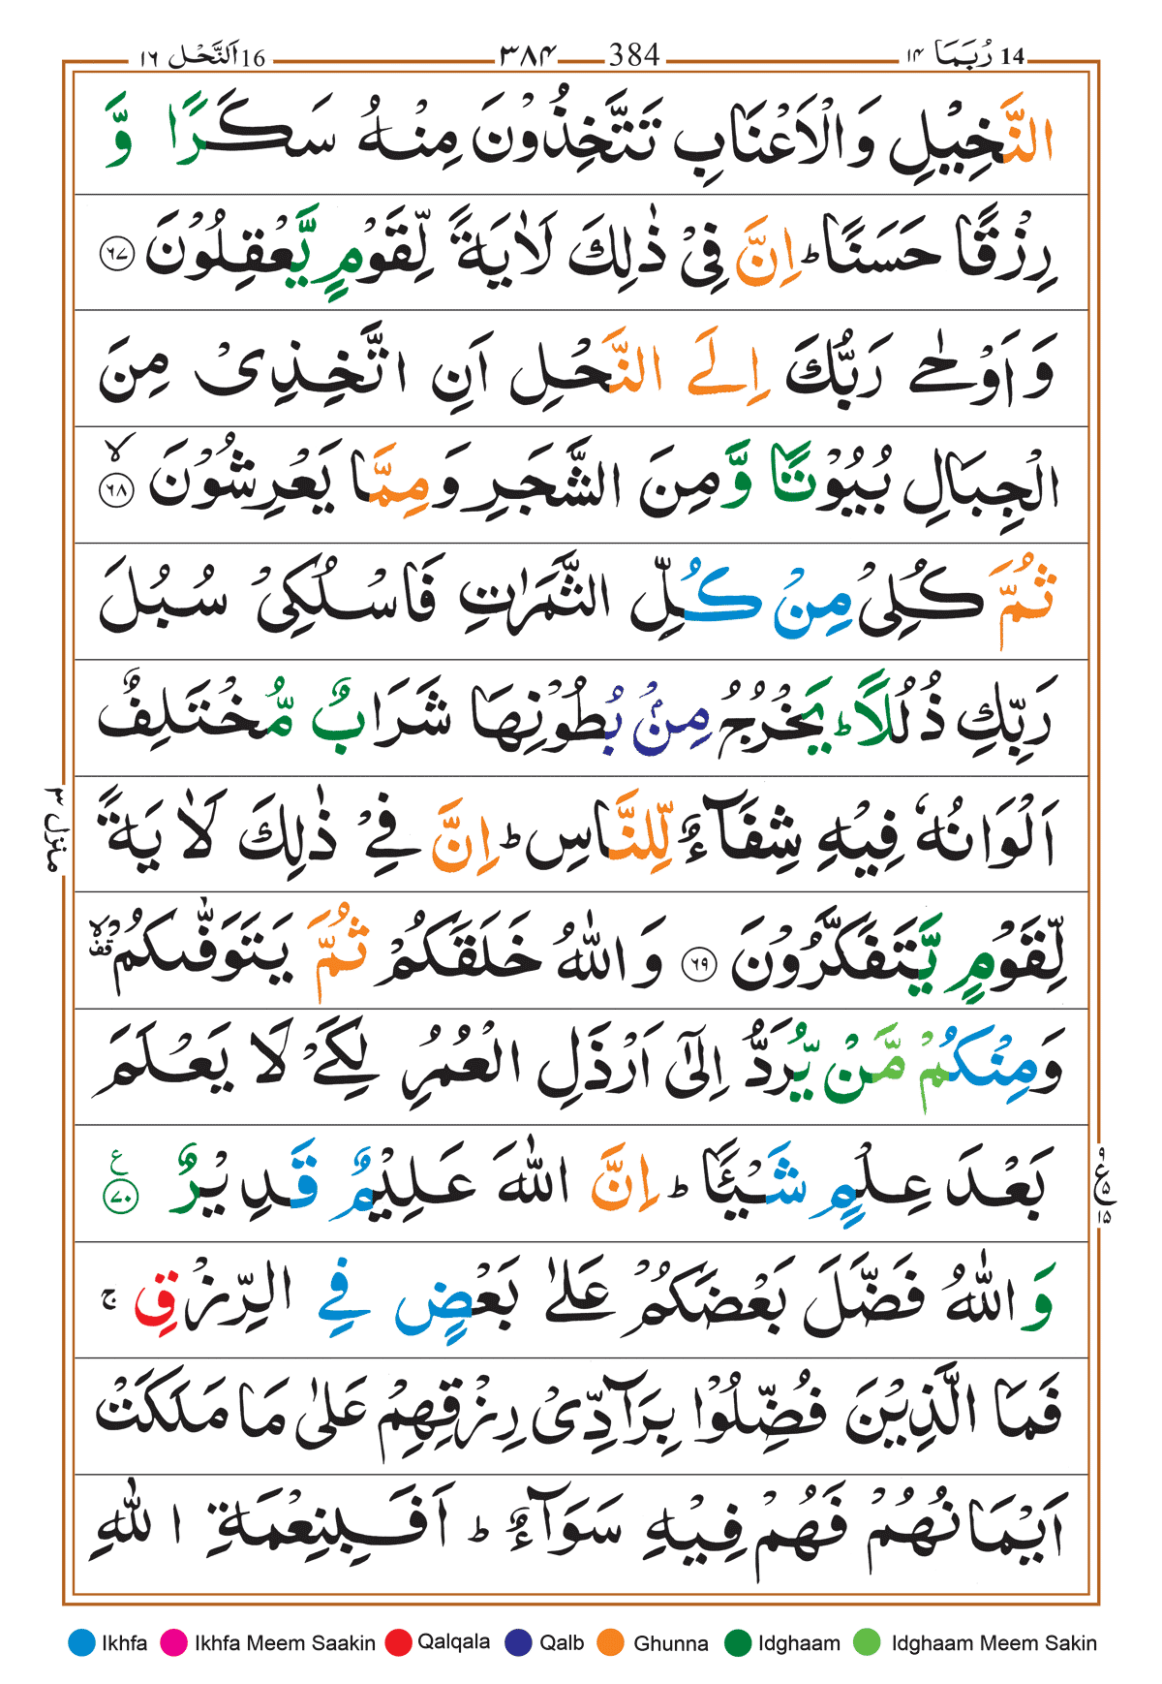 16 اَلنَّحْل ١٦ ٣٨۴ 384 14 رُبَمَا ١۴
النَّخِيْلِ وَالْاَعْنَابِ تَتَّخِذُوْنَ مِنْهُ سَكَرًا وَّ
رِزْقًا حَسَنًا ؕ اِنَّ فِىْ ذٰلِكَ لَاٰيَةً لِّقَوْمٍ يَّعْقِلُوْنَ ﴿٦٧﴾
وَاَوْحٰى رَبُّكَ اِلَى النَّحْلِ اَنِ اتَّخِذِىْ مِنَ
الْجِبَالِ بُيُوْتًا وَّمِنَ الشَّجَرِ وَمِمَّا يَعْرِشُوْنَ ۙ ﴿٦٨﴾
ثُمَّ كُلِىْ مِنْ كُلِّ الثَّمَرٰتِ فَاسْلُكِىْ سُبُلَ
رَبِّكِ ذُلُلًا ؕ يَخْرُجُ مِنْۢ بُطُوْنِهَا شَرَابٌ مُّخْتَلِفٌ
اَلْوَانُهٗ فِيْهِ شِفَآءٌ لِّلنَّاسِ ؕ اِنَّ فِىْ ذٰلِكَ لَاٰيَةً
لِّقَوْمٍ يَّتَفَكَّرُوْنَ ﴿٦٩﴾ وَاللّٰهُ خَلَقَكُمْ ثُمَّ يَتَوَفّٰٮكُمْ ۙ قف
وَمِنْكُمْ مَّنْ يُّرَدُّ اِلٰٓى اَرْذَلِ الْعُمُرِ لِكَىْ لَا يَعْلَمَ
بَعْدَ عِلْمٍ شَيْـًٔا ؕ اِنَّ اللّٰهَ عَلِيْمٌ قَدِيْرٌ ﴿٧٠﴾ ع
وَاللّٰهُ فَضَّلَ بَعْضَكُمْ عَلٰى بَعْضٍ فِى الرِّزْقِ ۚ
فَمَا الَّذِيْنَ فُضِّلُوْا بِرَآدِّىْ رِزْقِهِمْ عَلٰى مَا مَلَكَتْ
اَيْمَانُهُمْ فَهُمْ فِيْهِ سَوَآءٌ ؕ اَفَبِنِعْمَةِ اللّٰهِ
منزل ٣
ع ٥ ١٥
Ikhfa Ikhfa Meem Saakin Qalqala Qalb Ghunna Idghaam Idghaam Meem Sakin